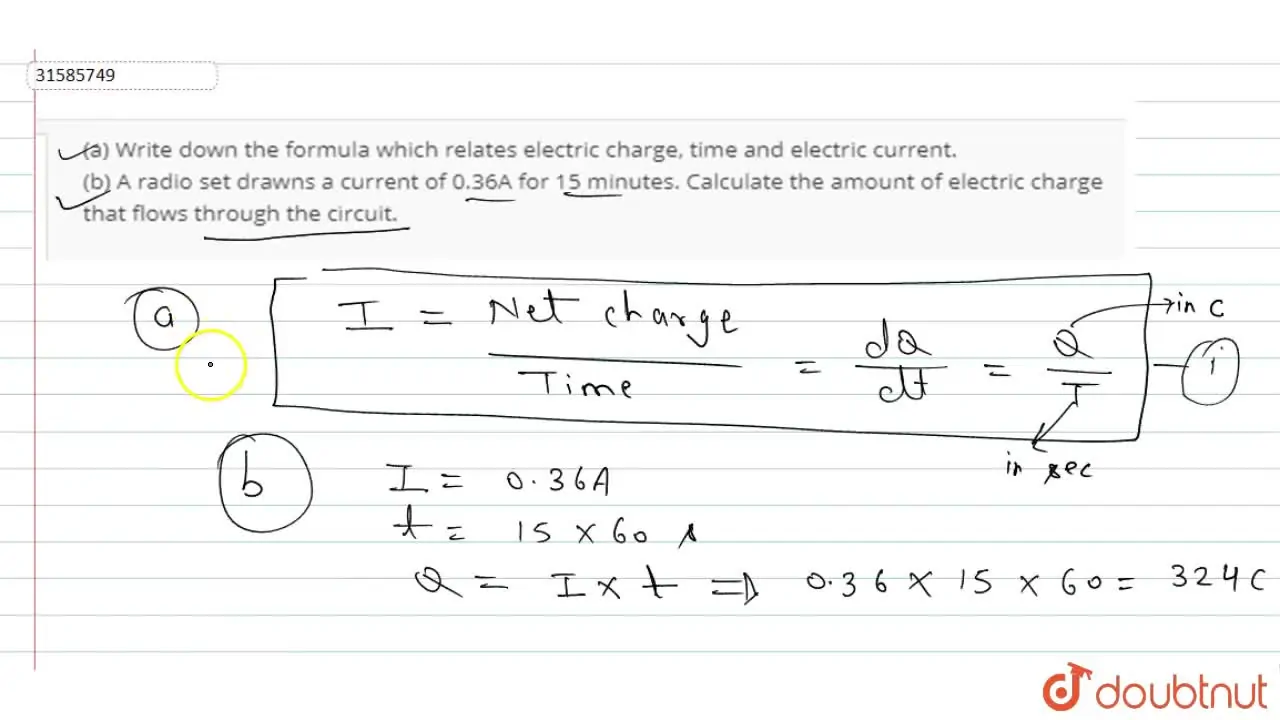 31585749
(a) Write down the formula which relates electric charge, time and electric current.
(b) A radio set drawns a current of 0.36A for 15 minutes. Calculate the amount of electric charge
that flows through the circuit.
a
I = Net charge / Time = dQ/dt = Q/T
in C
i
in sec
b
I = 0.36A
t = 15 × 60 s
Q = I × t ⇒ 0.36 × 15 × 60 = 324C
doubtnut